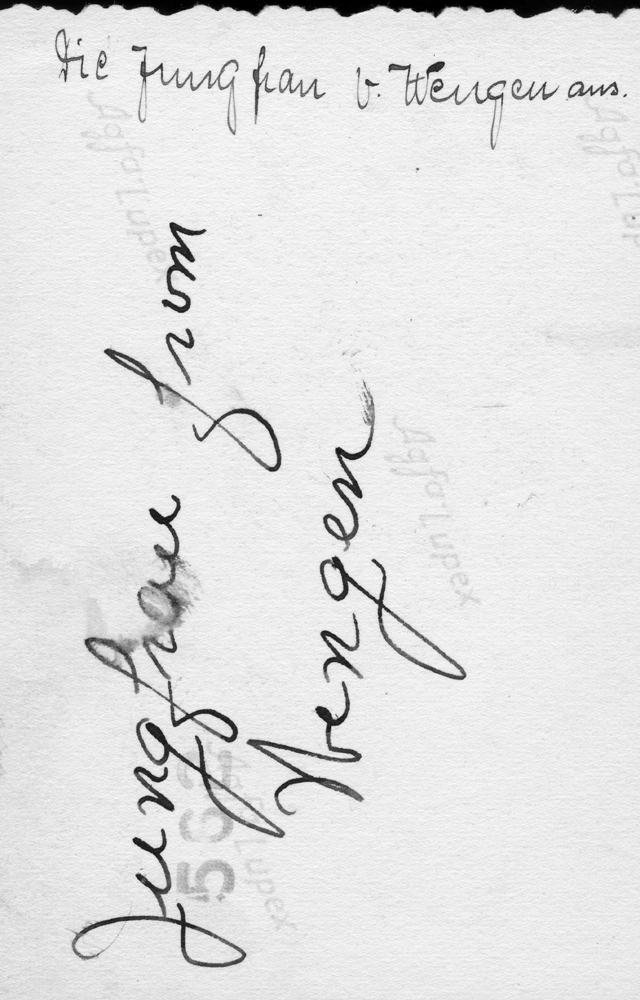 Die Jungfrau v. Wengen aus.
Jungfrau from
Wengen
Agfa Lupex
Agfa Lup
Agfa Lupex
Lupex